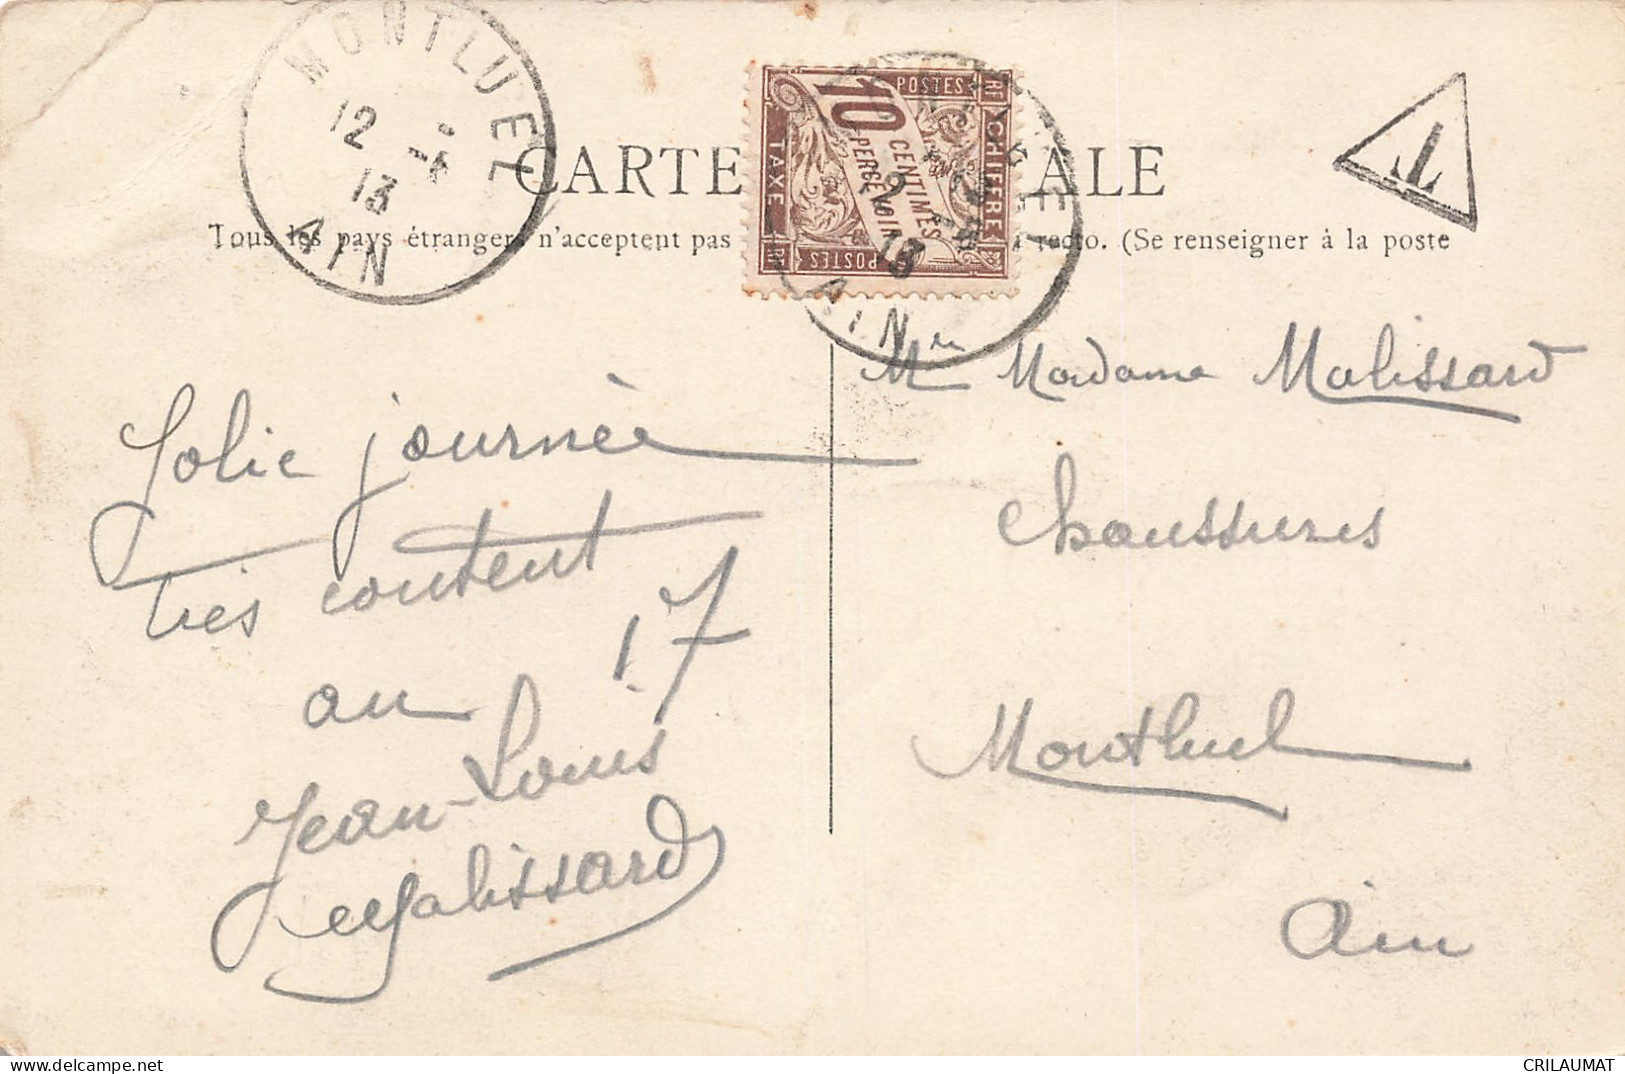 MONTLUEL
12 -4
13
AIN
CARTE ALE
Tous les pays étrangers n'acceptent pas recto. (Se renseigner à la poste
POSTES
RF
CHIFFRE
10
CENTIMES
A PERCEVOIR
TAXE
POSTES
13
AIN
T
Mr Madame Malissard
Chaussures
Montluel
Ain
Jolie journée
très content
au 17
Jean-Louis
Malissard
delcampe.net
CRILAUMAT